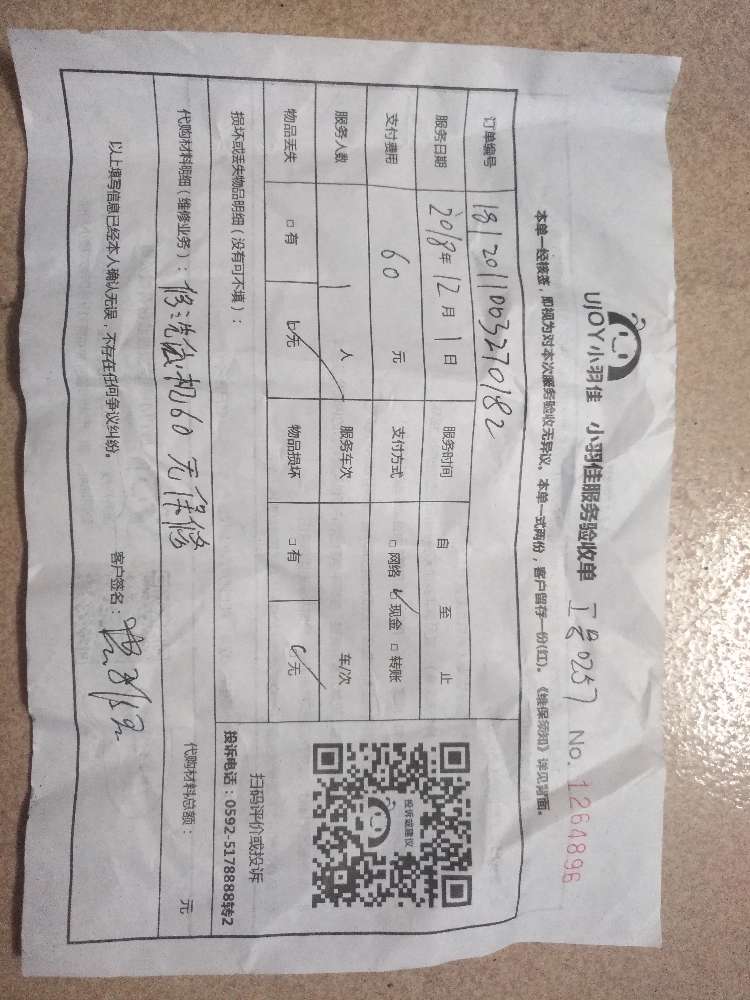 UJOY小羽佳 小羽佳服务验收单 工号0257 No.1264896
本单一经核签，即视为对本次服务验收无异议。本单一式两份，客户留存一份(红)。《维保须知》详见背面。
订单编号 18120110063270182
服务日期 2018年12月1日 服务时间 自 至 止
支付费用 60 元 支付方式 □网络 ☑现金 □转账
服务人数 1 人 服务车次 车/次
物品丢失 □有 ☑无 物品损坏 □有 ☑无
投诉或建议
扫码评价或投诉
投诉电话：0592-5178888转2
损坏或丢失物品明细（没有可不填）：
代购材料明细（维修业务）：修洗衣机60元保修 代购材料总额： 元
以上填写信息已经本人确认无误，不存在任何争议纠纷。 客户签名：